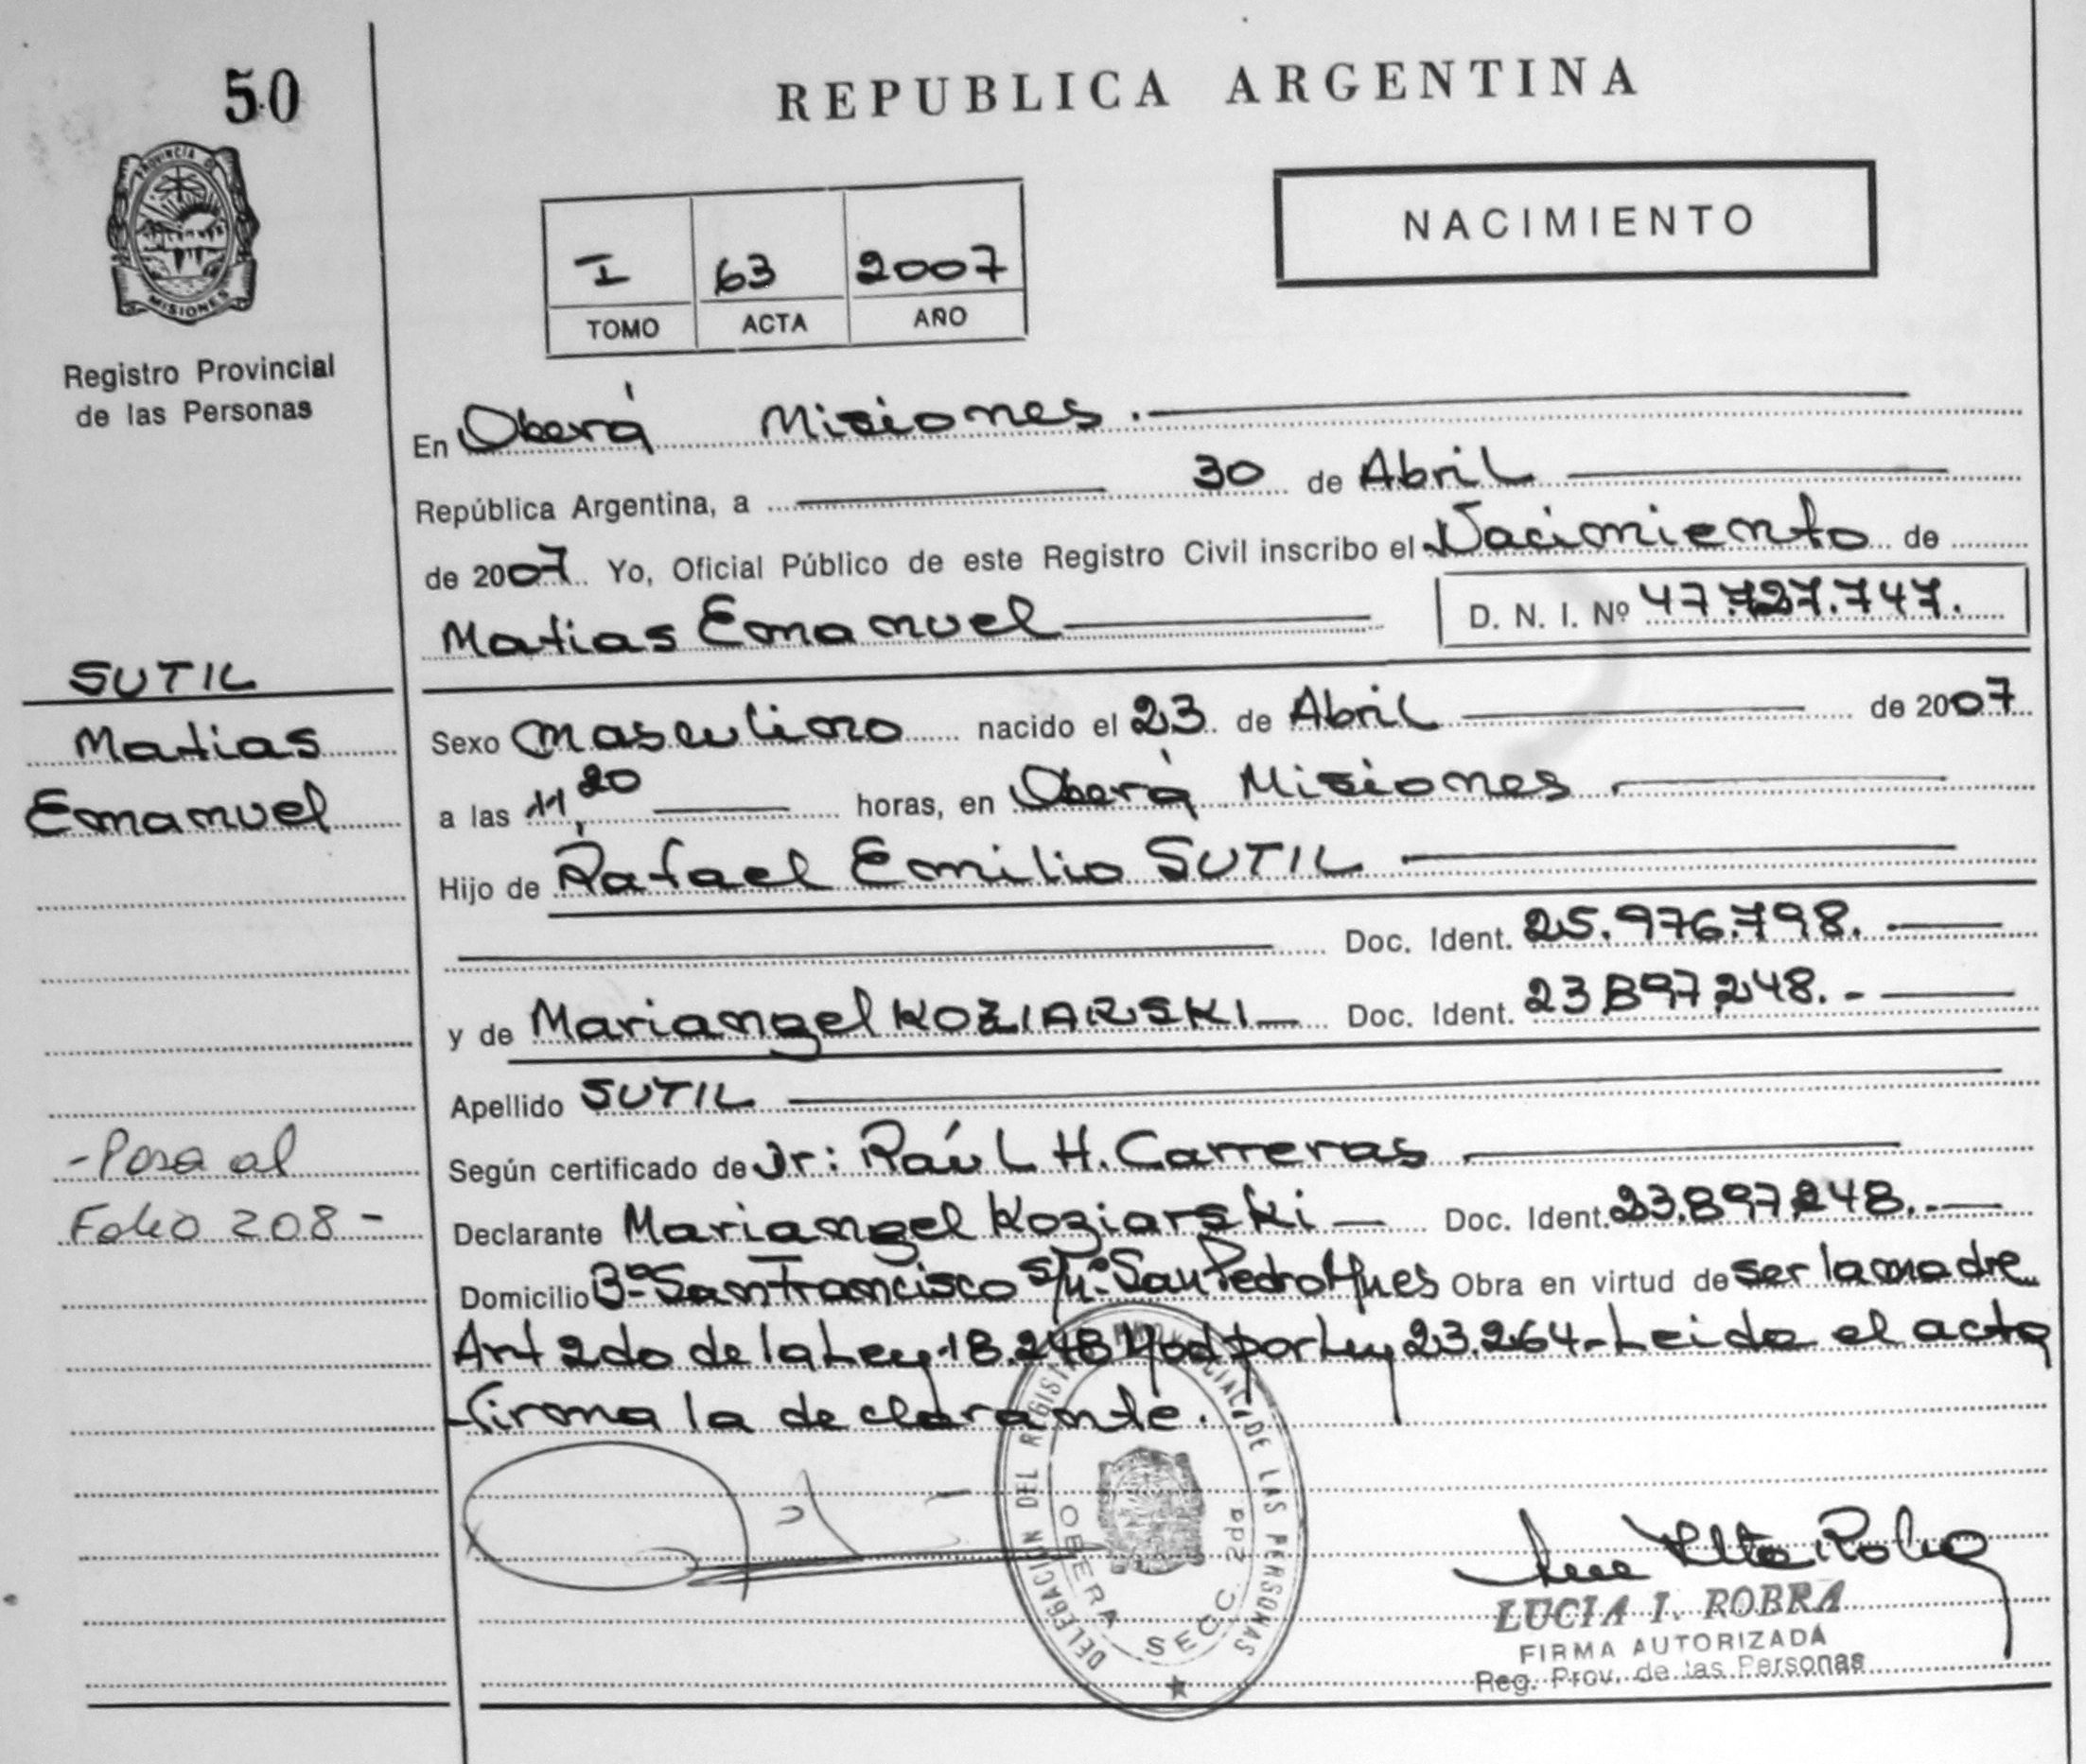 50
REPUBLICA ARGENTINA
PROVINCIA DE
MISIONES
Registro Provincial
de las Personas
I 63 2007
TOMO ACTA AÑO
NACIMIENTO
En Oberá Misiones.
República Argentina, a 30 de Abril
de 2007 Yo, Oficial Público de este Registro Civil inscribo el Nacimiento de
Matias Emanuel D. N. I. Nº 47.727.747.
SUTIL
Matias
Emanuel
Sexo masculino nacido el 23 de Abril de 2007
a las 11,20 horas, en Oberá Misiones
Hijo de Rafael Emilio SUTIL
Doc. Ident. 25.976.798.
y de Mariangel KOZIARSKI Doc. Ident. 23.897.248.-
Apellido SUTIL
-Pasa al
Folio 208-
Según certificado de Dr: Raúl H. Carreras
Declarante Mariangel Koziarski Doc. Ident. 23.897.248.-
Domicilio Bº San Francisco s/nº San Pedro Mnes Obra en virtud de ser la madre
Art 2do de la Ley 18.248 Mod por Ley 23.264.- Leida el acta
firma la declarante.
DELEGACION DEL REGISTRO PROVINCIAL DE LAS PERSONAS
OBERA SECC. 2da
LUCIA I. ROBRA
FIRMA AUTORIZADA
Reg. Prov. de las Personas